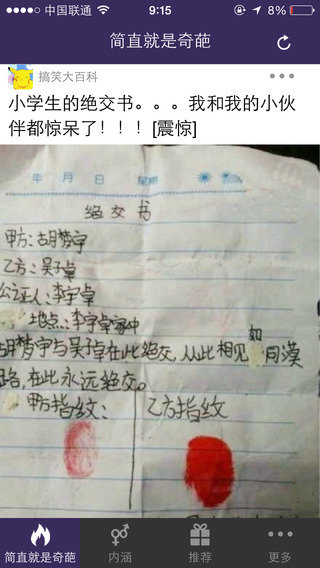 中国联通
9:15
8%
简直就是奇葩
搞笑大百科
小学生的绝交书。。。我和我的小伙
伴都惊呆了！！！[震惊]
年 月 日 星期
绝交书
甲方:胡梦宇
乙方:吴子卓
公证人:李宇卓
地点:李宇卓家中
胡梦宇与吴子卓在此绝交,从此相见如同漠
路,在此永远绝交。
甲方指纹: 乙方指纹
简直就是奇葩
内涵
推荐
更多